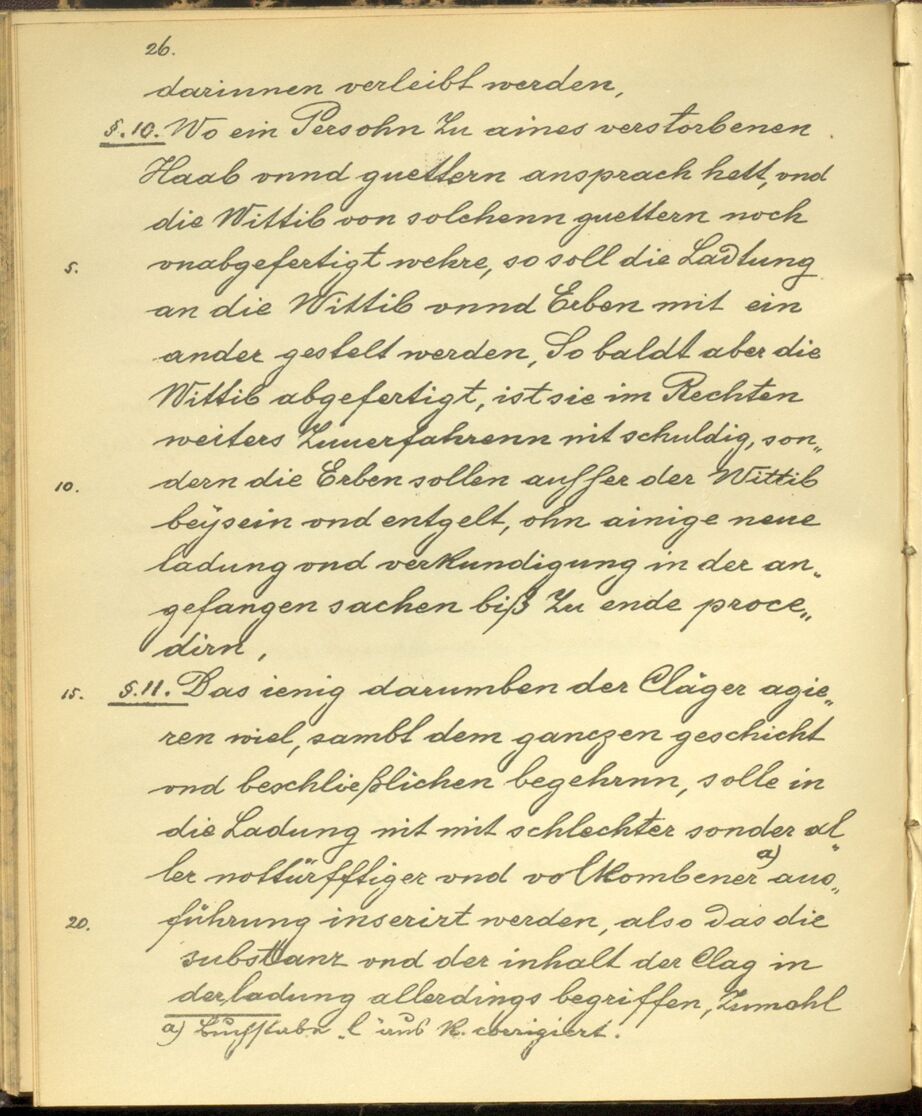 26.
darinnen verleibt werden,
§.10. Wo ein Persohn Zu aines verstorbenen
Haab vnnd guettern ansprach hett, vnd
die Wittib von solchenn guettern noch
5. vnabgefertigt wehre, so soll die Ladtung
an die Wittib vnnd Erben mit ein
ander gestelt werden, So baldt aber die
Wittib abgefertigt, ist sie im Rechten
weiters Zuuerfahrenn nit schuldig, son„
10. dern die Erben sollen ausser der Wittib
beÿsein vnd entgelt, ohn ainige neue
ladung vnd verkundigung in der an„
gefangen sachen biß Zu ende proce„
dirn,
15. §.11. Das ienig darumben der Cläger agie„
ren wiel, sambt dem ganczen geschicht
vnd beschließlichen begehrnn, solle in
die Ladung nit mit schlechter sonder al„
ler nottürfftiger vnd volkombener a) aus„
20. führung inserirt werden, also das die
substanz vnd der inhalt der Clag in
der ladung allerdings begriffen, Zumahl
a) Buchstabe „l“ aus k. corrigiert.